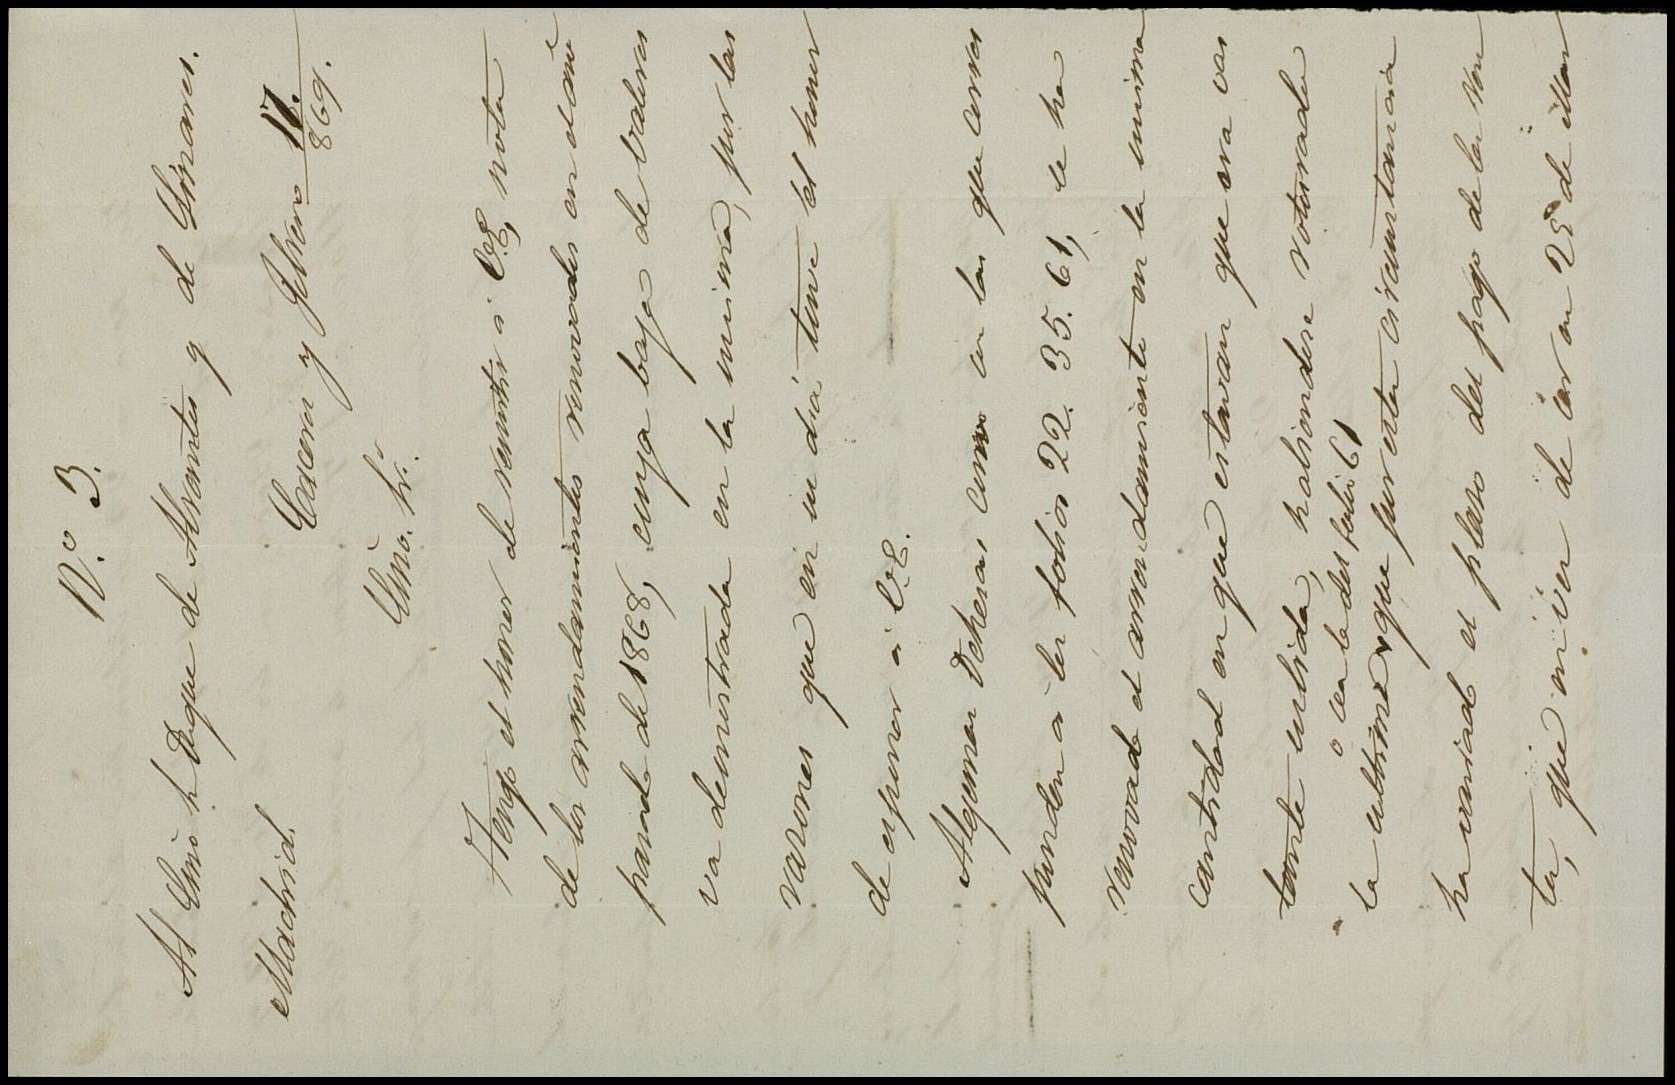 N.º 3.
Al Exmo. Sr. Duque de Abrantes y de Linares.
Madrid.
Caceres y Febrero 17. 869.
Exmo. Sr.
Tengo el honor de remitir a V.E, nota
de los arrendamientos renovados en el año
pasado de 1868, cuya baja de valores
va demostrada en la misma, por las
razones que en su dia tuve el honor
de esponer a V.E.
Algunas Dehesas como son las que corres
ponden a los folios 22. 35. 61, se ha
renovado el arrendamiento en la misma
cantidad en que estaban que era vas
tante subida, habiendose roturado
o sea la del folio 61
la ultima que por esta circunstancia
ha variado el plazo del pago de la ren
ta, que en vez de ser en 25 de Mar